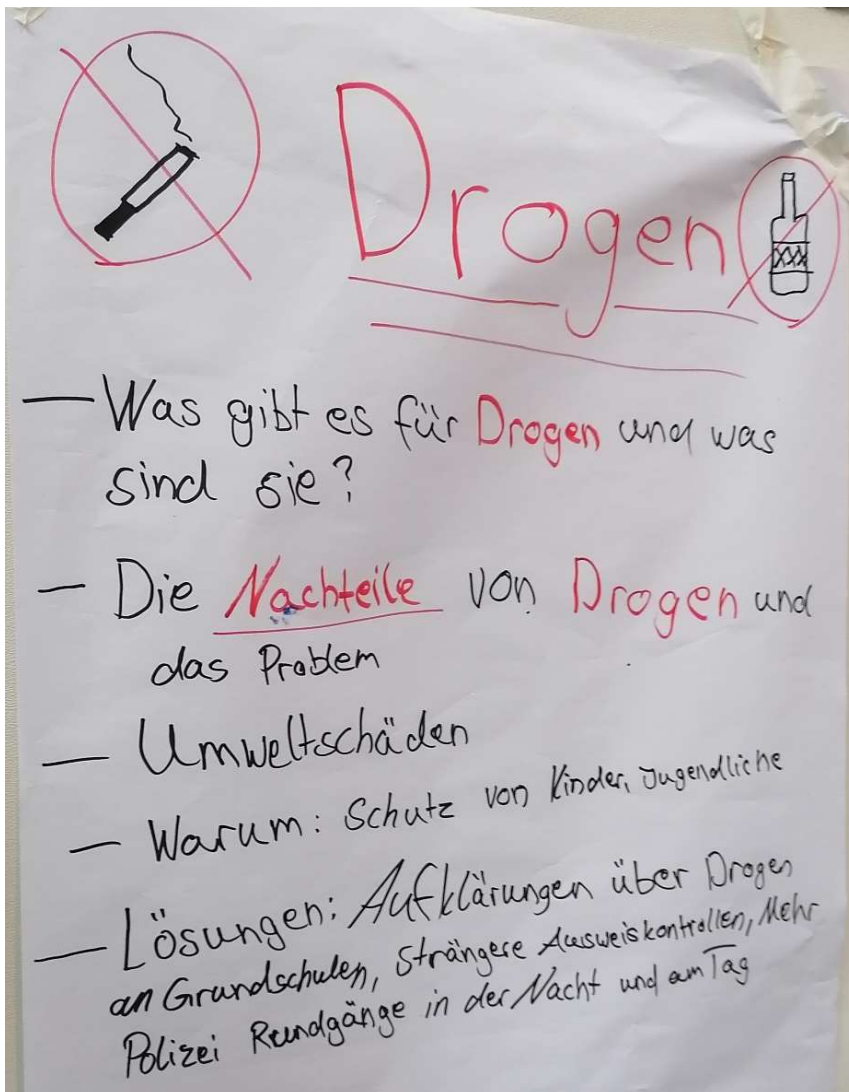 Drogen
XXX
— Was gibt es für Drogen und was
sind sie?
— Die Nachteile von Drogen und
das Problem
— Umweltschäden
— Warum: Schutz von Kinder, Jugendliche
— Lösungen: Aufklärungen über Drogen
an Grundschulen, Strängere Ausweiskontrollen, Mehr
Polizei Rundgänge in der Nacht und am Tag